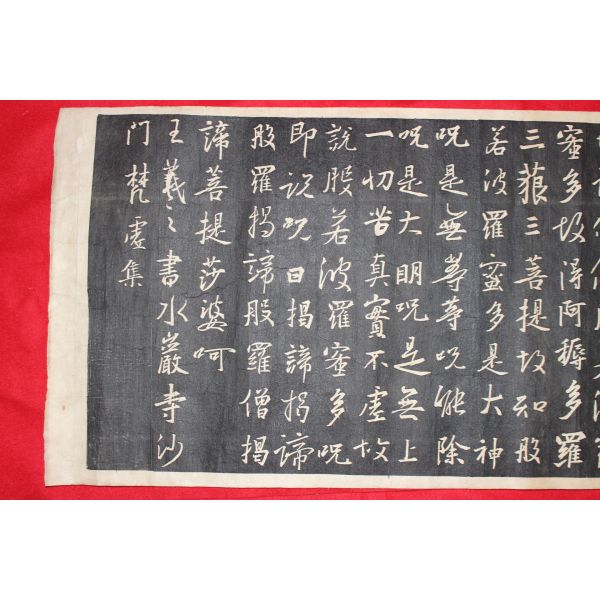 蜜多故得阿耨多羅
三藐三菩提故知般
若波羅蜜多是大神
呪是無等等呪能除
呪是大明呪是無上
一切苦真實不虛故
說般若波羅蜜多呪
即說呪曰揭諦揭諦
般羅揭諦般羅僧揭
諦菩提莎婆呵
王羲之書水巖寺沙
門梵虛集